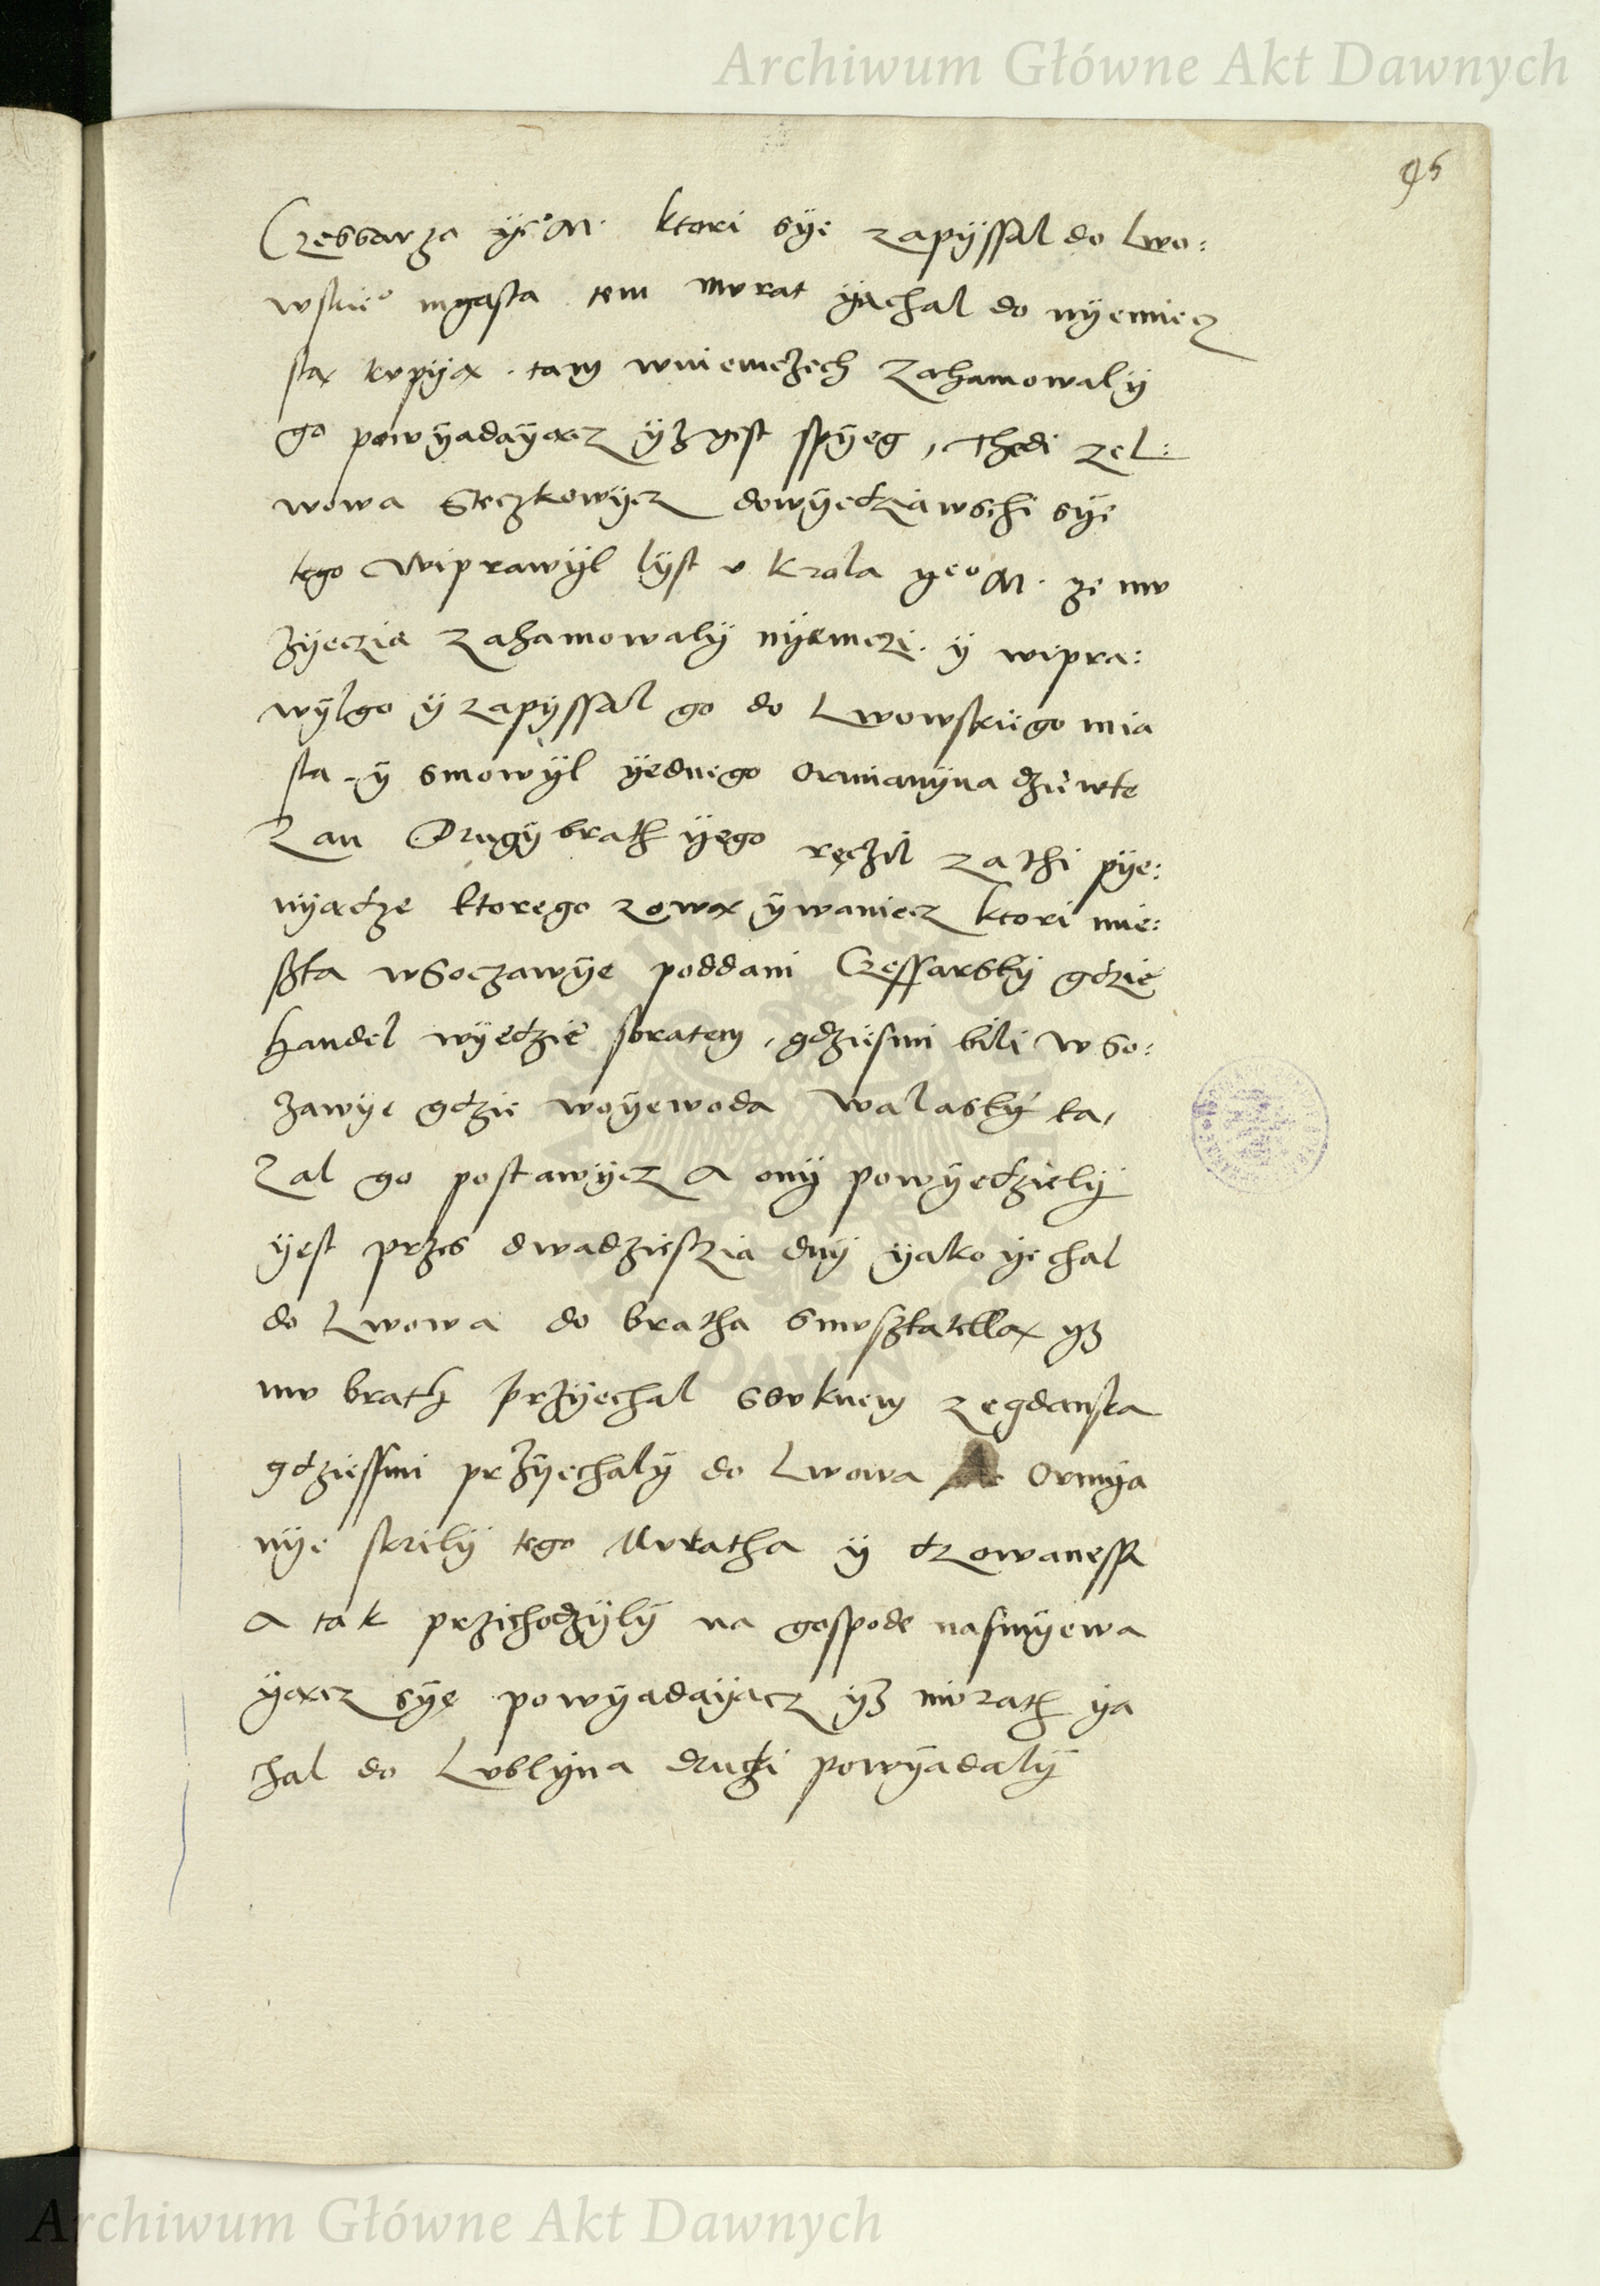 Archiwum Główne Akt Dawnych
95
Czessarza ye° M. ktori sye zapyssal do Lwo:
wskie° myasta tem Mvrat yachal do nyemiecz
ską kvpyą. tam wniemczech zahamowaly
go powyadayącz yz gest spyeg, Thedi zel:
wowa Steczkowycz dowyedziawschi sye
tego Wiprawyl lyst v Krola yeo M. ze mv
zyeczia zahamowaly nyemczi. y wipra:
wylgo y zapyssal go do Lwowskiego mia
sta. y smowyl yednego Ormianyna
Drugy brath yego ręczil zathi pye:
nyądze ktorego zową ywaniecz ktori mie:
szka wSoczawye poddani Czessarsky gdzie
handel wyedzie sbratem, gdziesmi bili wSo:
zawye gdzie woyewoda Walasky ka,
zal go postawycz A ony powyedziely
yest przes dwadziesczia dny yako yechal
do Lwowa do bratha smvszkatellą yz
mv brath przyechal ssvknem zegdanska
gdziessmi przyechaly do Lwowa Ormya
nye skrily tego Mvratha y dzowanessa
A tak przichodzyly na gospode nasmyewa
yącz sye powyadayacz yz mvrath ya
chal do Lvblyna druzi powyadaly
Archiwum Główne Akt Dawnych